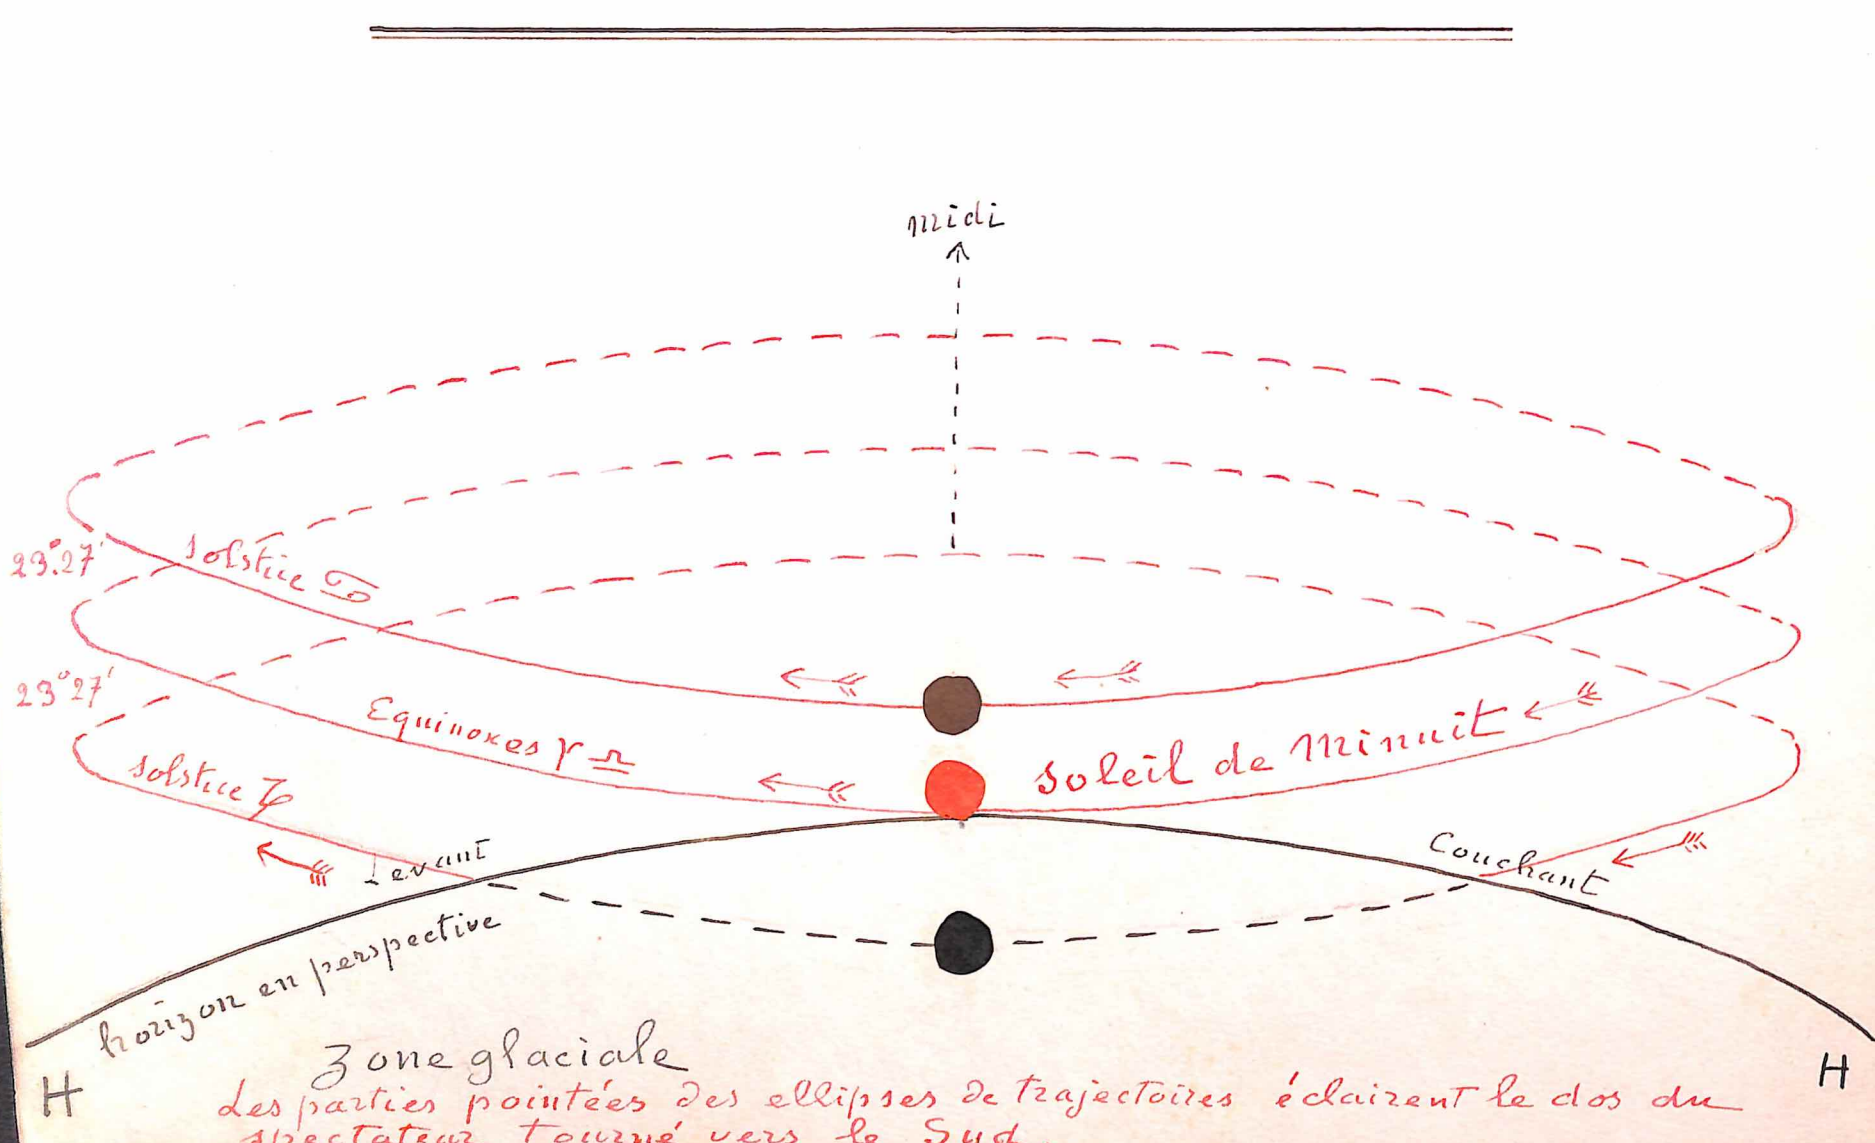 midi
23°.27'
solstice ♋
23°27'
Equinoxes ♈ ♎
soleil de Minuit
solstice ♑
Levant
Couchant
horizon en perspective
zone glaciale
H
H
Les parties pointées des ellipses de trajectoires éclairent le dos du
spectateur tourné vers le Sud